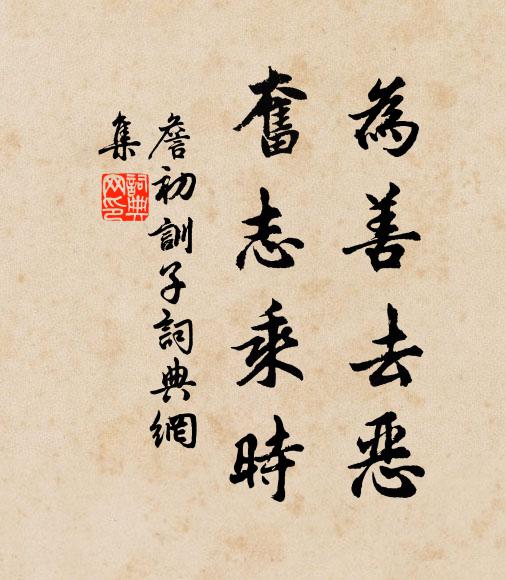 為善去惡
奮志乘時
詹初訓子詞典網
集
詞典
网印